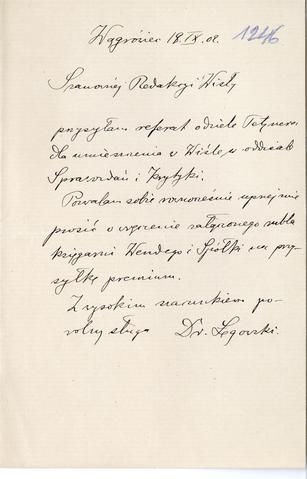 Wągrówiec 18.IX.02. 1246
Szanownej Redakcyi Wisły
przysyłam referat o dziele Tetznera
dla umieszczenia w Wiśle w oddziale
Sprawozdań i Krytyki.
Pozwalam sobie równocześnie uprzejmie
prosić o wręczenie załączonego rubla
księgarni Wendego i Spółki na prze-
syłkę premium.
Z wysokim szacunkiem po-
wolny sługa Dr. Łęgowski.